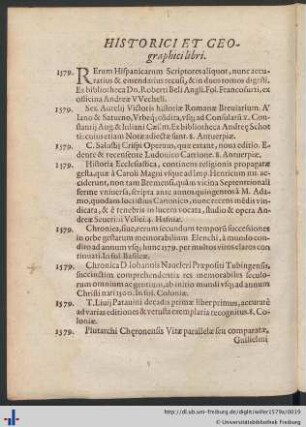 HISTORICI ET GEO-
graphici libri.
1579. RErum Hispanicarum Scriptores aliquot, nunc accu-
ratius & emendatius recusi, & in duos tomos digesti.
Ex bibliotheca Dn. Roberti Beli Angli. Fol. Francofurti, ex
officina Andreæ VVecheli.
1579. Sex. Aurelij Victoris historiæ Romanæ Breuiarium. A'
Iano & Saturno, Vrbeq; cōdita, vsq; ad Consulatū x. Con-
stantij Aug. & Iuliani Cæs. tt. Ex bibliotheca Andreę Schot
ti: cuius etiam Notæ adiectæ sunt. 8. Antuerpiæ.
1579. C. Salustij Crispi Operum, quæ extant, noua editio. E-
dente & recensente Ludouico Carrione. 8. Antuerpiæ.
1579. Historia Ecclesiastica, continens religionis propagatæ
gesta, quæ à Caroli Magni vsque ad Imp. Henricum IIII.
acciderunt, non tam Bremensib. quàm vicina Septentrionali
ferme vniuersa, scripta ante annos quingentos à M. Ada-
mo, quodam loci istius Canonico, nunc recens mēdis vin-
dicata, & è tenebris in lucem vocata, studio & opera And
reæ Seuerini Velleij. 4. Hafniæ.
1579. Chronica, siue, rerum secundum temporū successiones
in orbe gestarum memorabilium Elenchi, à mundo con-
dito ad annum vsq; hunc 1579. per multos viros claros con
tinuati. In fol. Basileæ.
1579. Chronica D. Iohannis Naucleri Præpositi Tubingensis,
succinctim comprehendentia res memorabiles seculo-
rum omnium ac gentium, ab initio mundi vsq; ad annum
Christi nati
In fol. Coloniæ.
1579. T. Liuij Patauini decadis primæ liber primus, accuratè
ad varias editiones & vetusta exemplaria recognitus. 8. Co-
loniæ.
1579. Plutarchi Chęronensis Vitæ parallelæ seu comparatæ,
Guilielmi
http://dl.ub.uni-freiburg.de/diglit/willer1579a/0019
© Universitätsbibliothek Freiburg